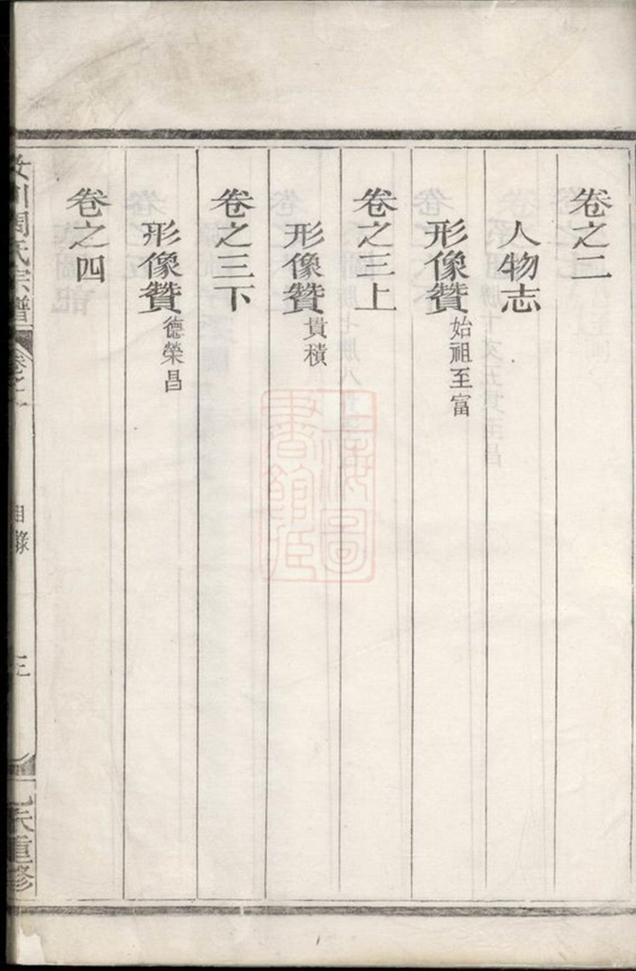 卷之二
人物志
形像贊 始祖至富
卷之三上
形像贊 貴積
卷之三下
形像贊 德榮昌
卷之四
周氏宗譜
卷之一
目錄
三
重修
上海圖書館藏